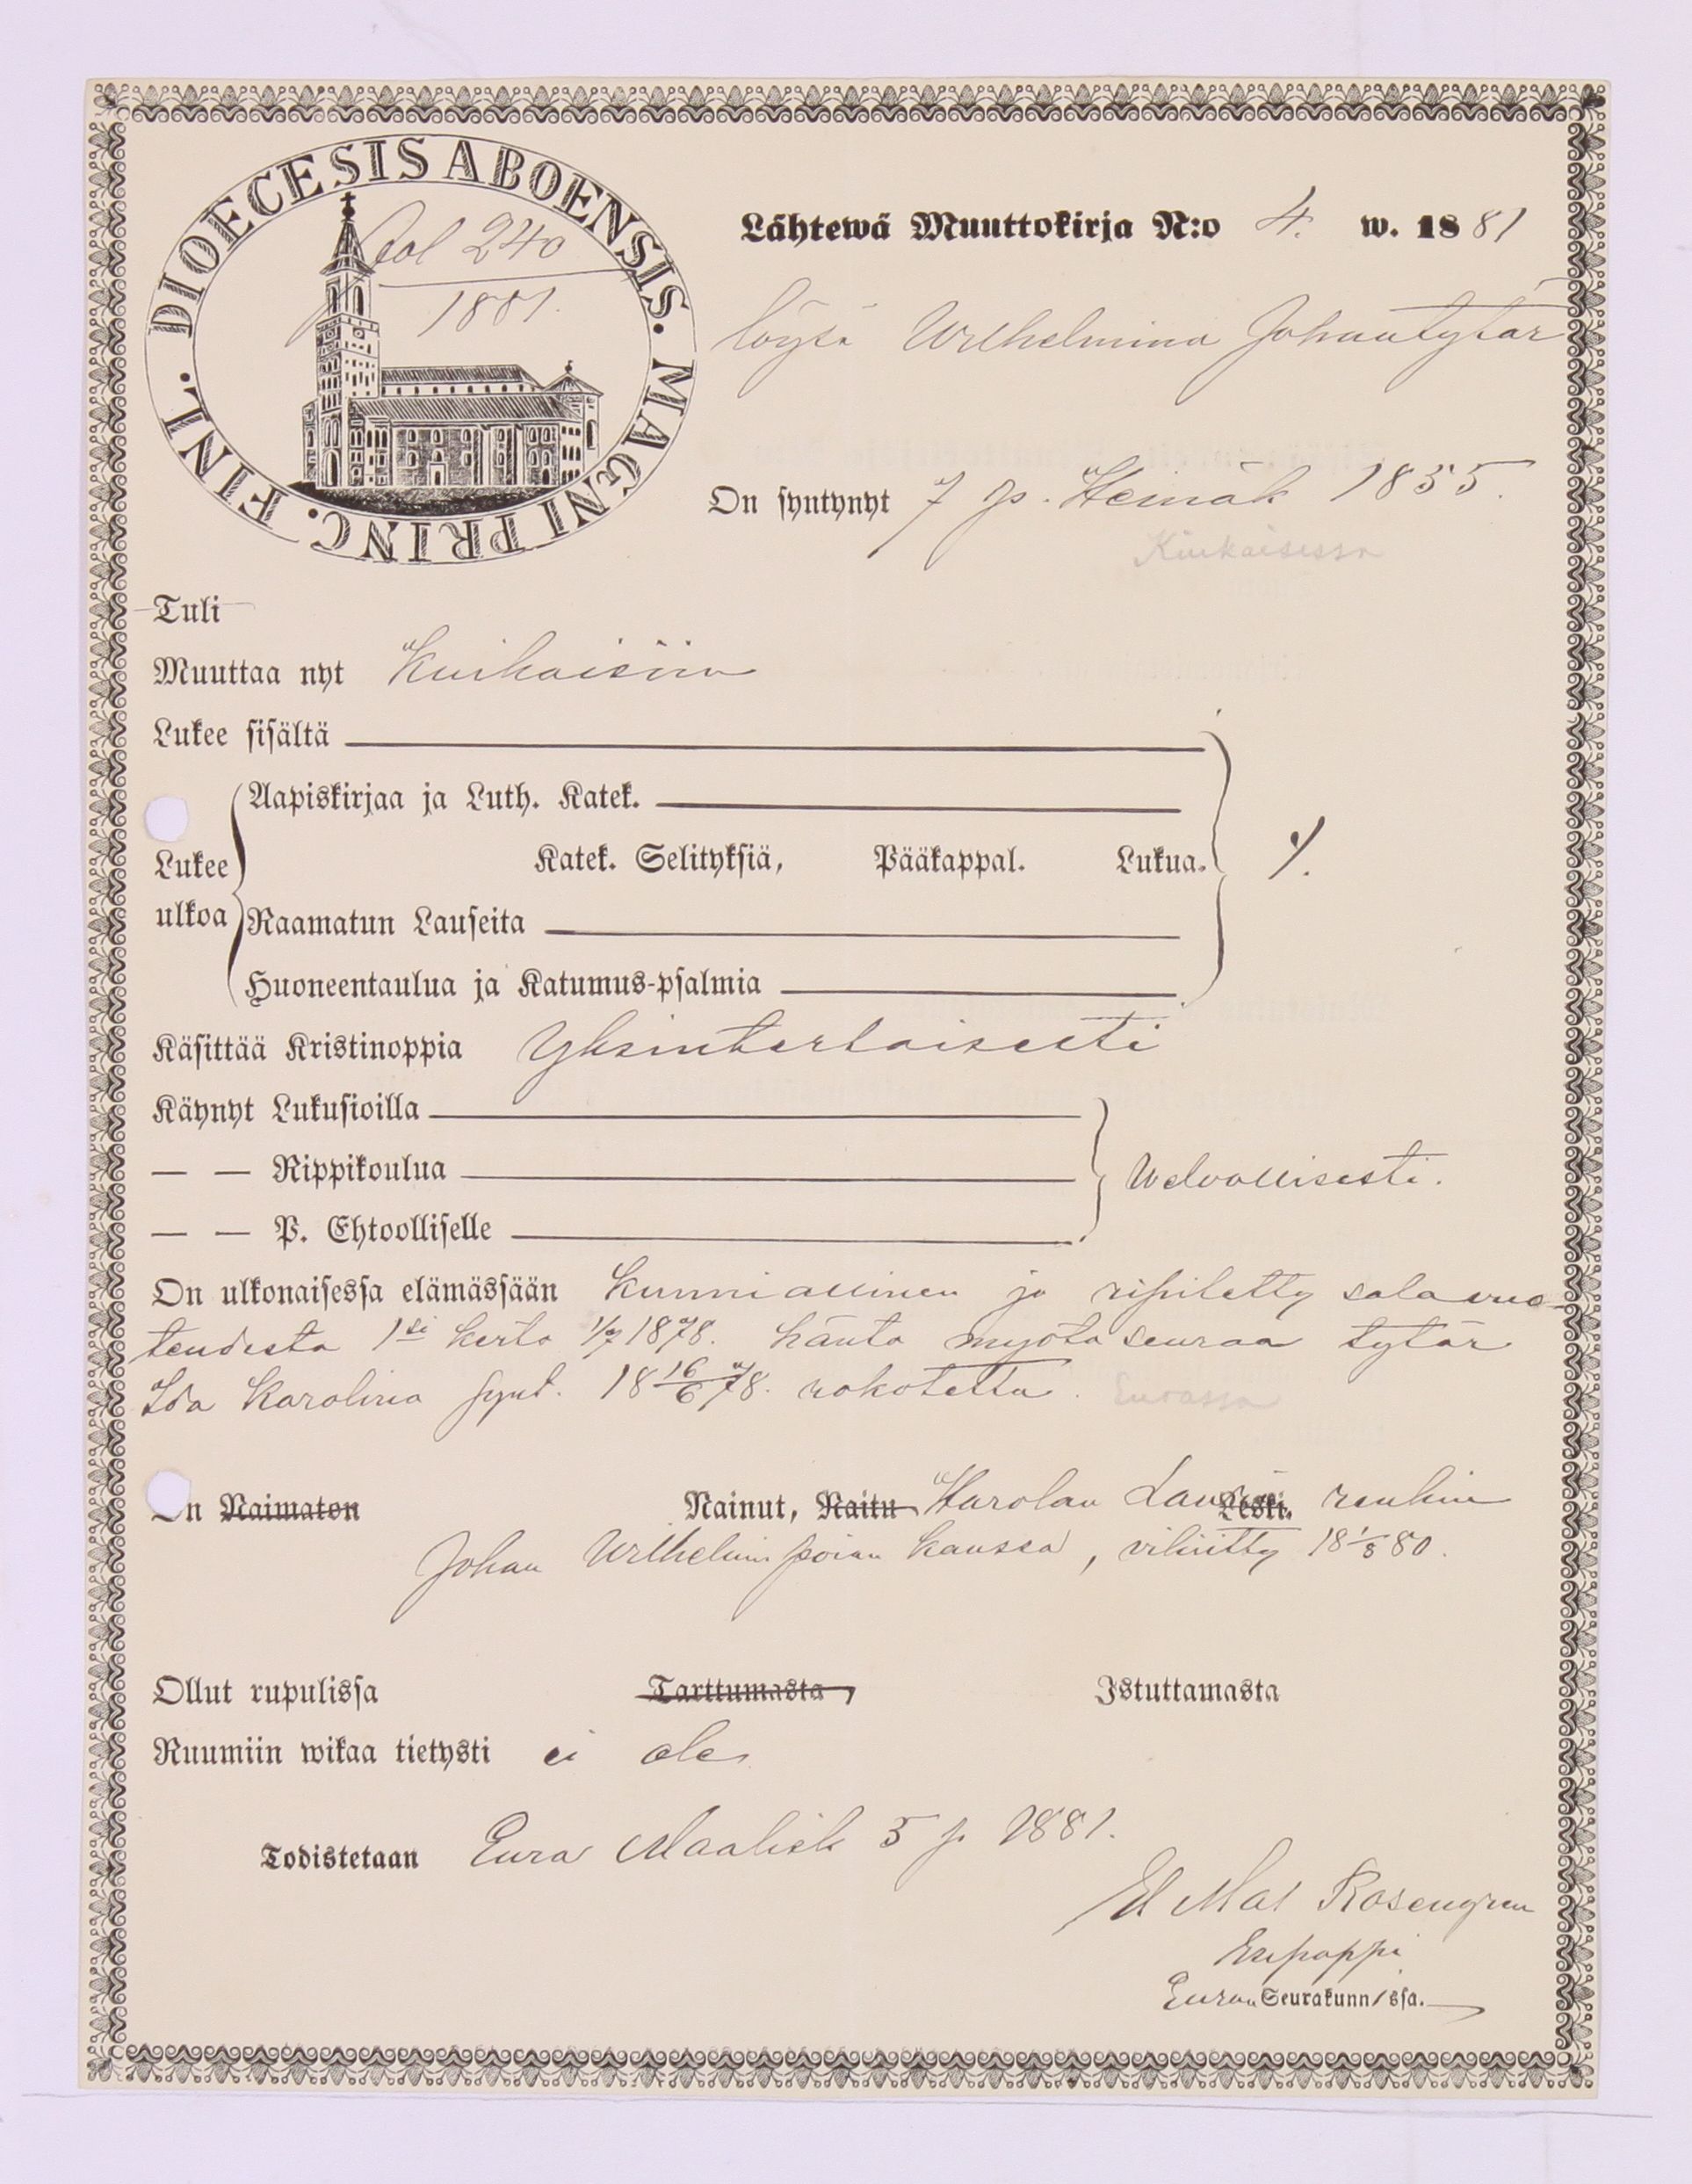 DIOECESIS ABOENSIS. MAGNI PRINC. FINL.
Fol 240
1881.
Lähtewä Muuttokirja N:o 4. w. 1881
löysä Wilhelmina Johantytär
On syntynyt 7 p. Heinäk 1855.
Kiukaisissa
Tuli
Muuttaa nyt Kiukaisiin
Lukee sisältä
Aapiskirjaa ja Luth. Katek.
Lukee ulkoa Katek. Selityksiä, Pääkappal. Lukua.
Raamatun Lauseita
Huoneentaulua ja Katumus-psalmia
Käsittää Kristinoppia Yksinkertaisesti
Käynyt Lukusioilla
— — Rippikoulua Welvollisesti.
— — P. Ehtoolliselle
On ulkonaisessa elämässään kunniallinen ja ripitetty salavuo-
teudesta 1si kerta 1/7 1878. häntä myötä seuraa tytär
Ida Karolina synt. 18 16/6 78. rokotettu. Eurassa
On Naimaton Nainut, Naitu Harolan Laurin Leski. renkin
Johan Wilhelm pojan kanssa, vihitty 18 1/8 80.
Ollut rupulissa Tarttumasta, Istuttamasta
Ruumiin wikaa tietysti ei ole
Todistetaan Eura Maalisk 5 p. 1881.
Rosengren
Euran Seurakunnissa.